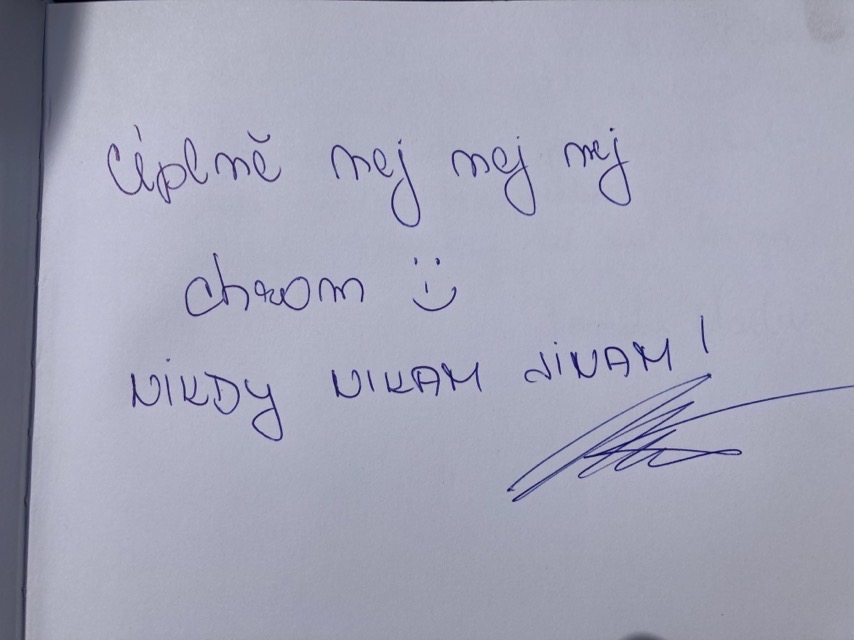 Úplně nej nej nej
chrom :)
NIKDY NIKAM JINAM!